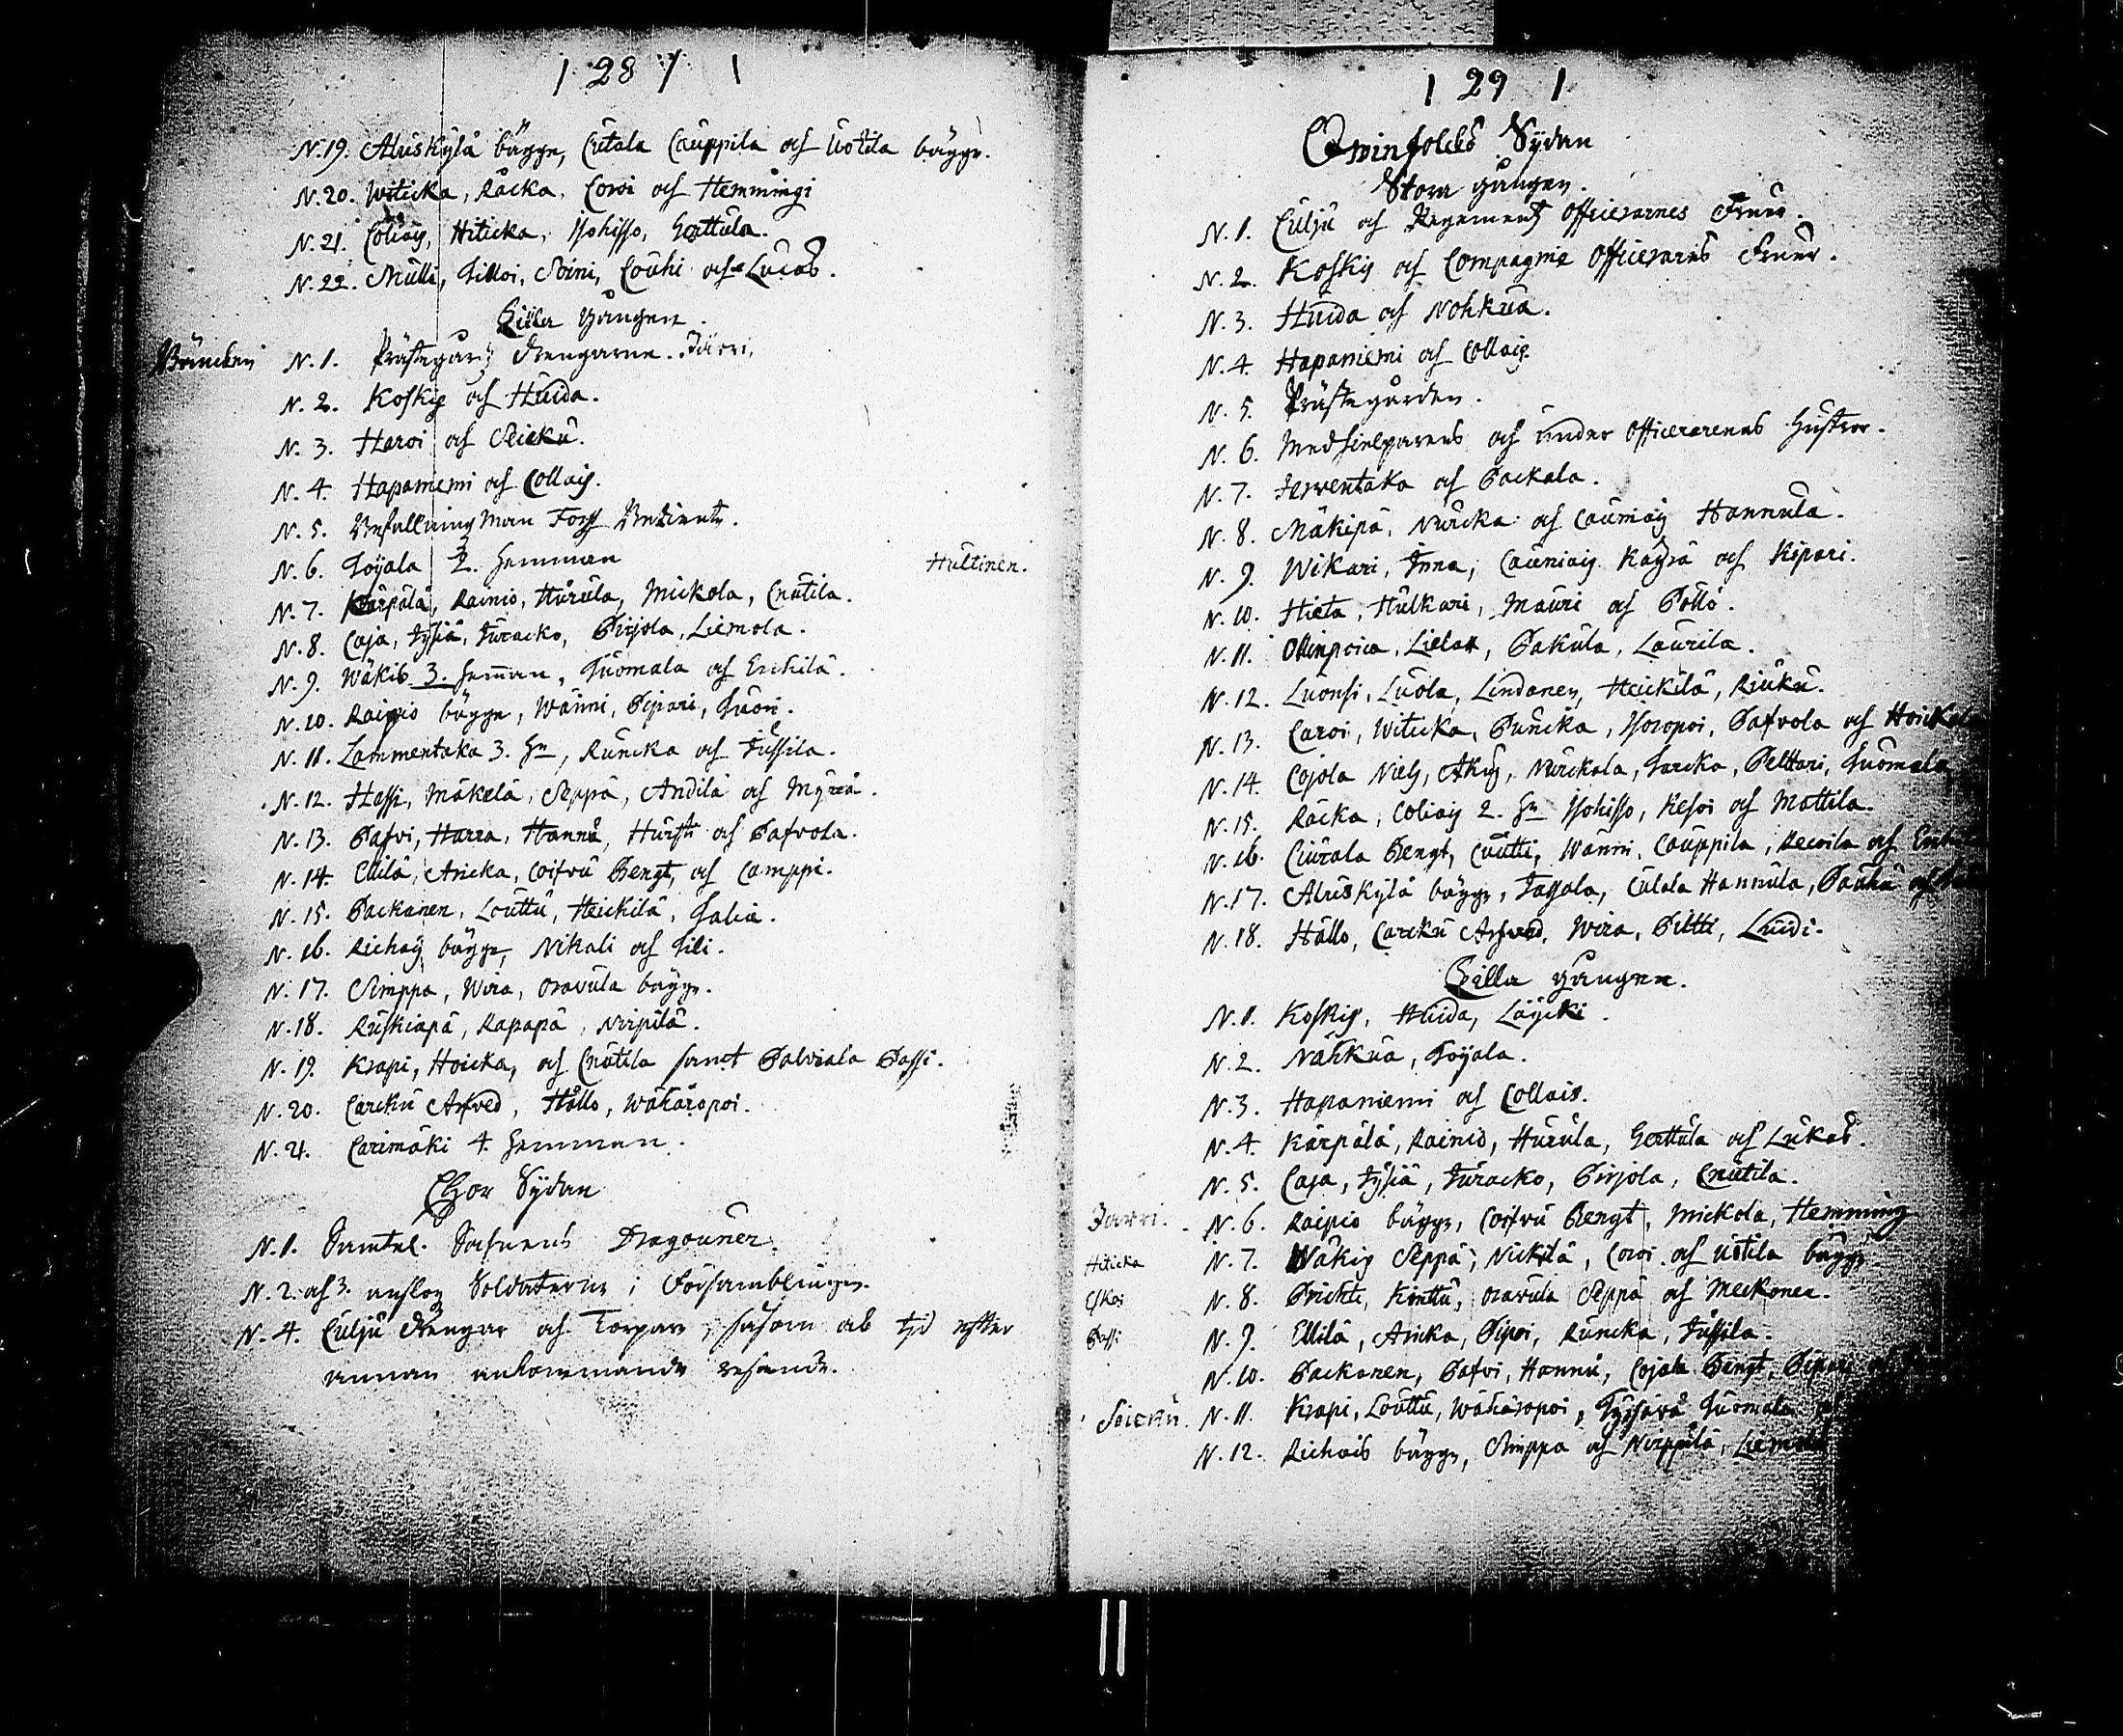 | 28 / |
N. 19. Aluskylä bägge, Cutala Cauppila och Uotila bägge.
N. 20. Witicka, Räcka, Coroi och Hemmingi
N. 21. Coliais, Hiticka, Isohisso, Gerttula.
N. 22. Mulli, Filloi, Soini, Couhi och Lucas.
Lilla gången.
N. 1. Prästegårdz drengarne. Järri.
N. 2. Koskis och Huida.
N. 3. Haroi och Seicku.
N. 4. Hapaniemi och Collais.
N. 5. Befallningsman Betiente.
N. 6. Töyala 2. hemman Hultinen.
N. 7. Kärpälä, Rainio, Hurula, Mickola, Cnutila.
N. 8. Caja, Tysiä, Turacko, Pirjola, Liemola.
N. 9. Wäkis 3. hemman, Tuomala och Erckilä.
N. 10. Raipio bägge, Wänni, Pipari, Tuori.
N. 11. Lammentaka 3. Hn, Runcka och Jussila.
N. 12. Hassi, Mäkelä, Seppä, Andila och Myrrä.
N. 13. Pafvi, Harra, Hannu, Hursti och Pafvola.
N. 14. Ellilä, Aricka, Coifvu Bengt, och Camppi.
N. 15. Packanen, Louttu, Heickilä, Talia.
N. 16. Richais bägge, Nikali och Tili.
N. 17. Simppa, Wira, Oravula bägge.
N. 18. Ruskiapä, Rapapä, Nirpilä.
N. 19. Krapi, Hoicka, och Cnutila samt Palviala Passi.
N. 20. Carcku Arfved, Hållo, Wähäropoi.
N. 21. Carimäki 4. hemman.
Chor Sydan
N. 1. Samtel. Sochnens Dragouner.
N. 2. och 3. Soldaterne i Församblingen.
N. 4. Culju drengar och Torpare, såsom ock tjd efter
annan ankommande resande.
| 29 |
Qwinfolcks Sydan
Stora gången.
N. 1. Culju och Regements Officerarnes Fruer.
N. 2. Koskis och Compagnie Officerarnes Fruer.
N. 3. Huida och Nohkua.
N. 4. Hapaniemi och Collais
N. 5. Prästegården.
N. 6. Medhielparens och under Officerarenas hustror.
N. 7. Jerventaka och Packala.
N. 8. Mäkipä, Nurcka och Cauniais Hannula.
N. 9. Wikari, Inna, Cauniais Kayrä och Kipari.
N. 10. Hieta, Hulkari, Mauri och Pöllö.
N. 11. Ollinpoia, Lielax, Pakula, Laurila.
N. 12. Luonsi, Luola, Lindanen, Heickilä, Riuku.
N. 13. Caroi, Witicka, Puncka, Isoropoi, Pafvola och Hoickala
N. 14. Cojola Niels, Akus, Nurckala, Jarcka, Pelttari, Tuomala
N. 15. Räcka, Coliais 2. Hn Isohisso, Kesoi och Mattila.
N. 16. Ciurala Bengt, Cuutti, Wänni, Cauppila, Recoila och
N. 17. Aluskylä bägge, Tassala, Culala Hannula,
N. 18. Hållo, Carcku Arfved, Wira, Piltti, Luidi.
Lilla gången.
N. 1. Koskis, Huida, Läycki.
N. 2. Nåhkua, Töyala.
N. 3. Hapaniemi och Collais.
N. 4. Kärpälä, Rainio, Hurula, Gerttula och Lukas.
N. 5. Caja, Tysiä, Turacko, Pirjola, Cnutila.
Jarri. N. 6. Raipio bägge, Coifvu Bengt, Mickola, Hemming
Hiticka N. 7. Wäkis Seppä, Nickilä, Coroi och Uotila bägge
N. 8. Prichti, Kinttu, Oravula Seppä och Meckonen.
Passi N. 9. Ellilä, Aricka, Pipoi, Runcka, Jussila.
N. 10. Packanen, Pafvi, Hannu, Cojola Bengt,
Seicku. N. 11. Krapi, Louttu, Wähäropoi, Tuomala
N. 12. Richais bägge, Simppa och Nirppilä, Liemola